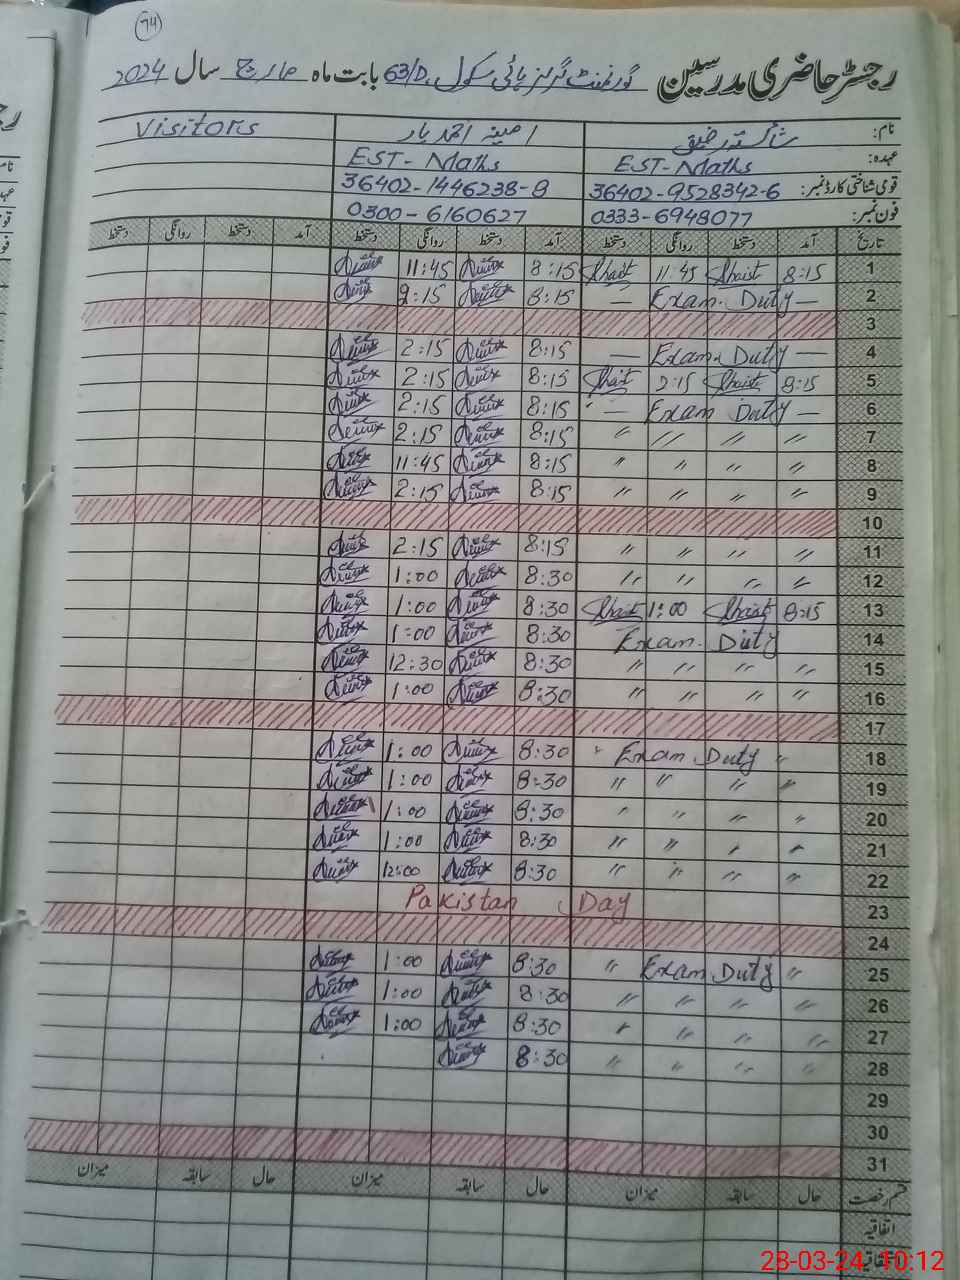 74
رجسٹر حاضری مدرسین گورنمنٹ گرلز ہائی سکول 63/D بابت ماہ مارچ سال 2024
نام: شائستہ رفیق امینہ احمد یار Visitors
عہدہ: EST-Maths EST-Maths
قومی شناختی کارڈ نمبر: 36402-9528342-6 36402-1446238-8
فون نمبر: 0333-6948077 0300-6160627
تاریخ آمد دستخط روانگی دستخط آمد دستخط روانگی دستخط آمد دستخط روانگی دستخط
1 8:15 Shaist 11:45 Shaist 8:15 11:45
2 — Exam. Duty — 8:15 2:15
3
4 — Exam. Duty — 8:15 2:15
5 8:15 Shaist 2:15 Shaist 8:15 2:15
6 — Exam Duty — 8:15 2:15
7 〃 〃 〃 〃 8:15 2:15
8 〃 〃 〃 〃 8:15 11:45
9 〃 〃 〃 〃 8:15 2:15
10
11 〃 〃 〃 〃 8:15 2:15
12 〃 〃 〃 〃 8:30 1:00
13 8:15 Shaist 1:00 Shaist 8:30 1:00
14 Exam. Duty 8:30 1:00
15 〃 〃 〃 〃 8:30 12:30
16 〃 〃 〃 〃 8:30 1:00
17
18 〃 Exam Duty 〃 8:30 1:00
19 〃 〃 〃 〃 8:30 1:00
20 〃 〃 〃 〃 8:30 1:00
21 〃 〃 〃 〃 8:30 1:00
22 〃 〃 〃 〃 8:30 12:00
23 Pakistan Day
24
25 〃 Exam Duty 〃 8:30 1:00
26 〃 〃 〃 〃 8:30 1:00
27 〃 〃 〃 〃 8:30 1:00
28 〃 〃 〃 〃 8:30
29
30
31
قسم رخصت حال سابقہ میزان حال سابقہ میزان حال سابقہ میزان
اتفاقیہ
28-03-24 10:12